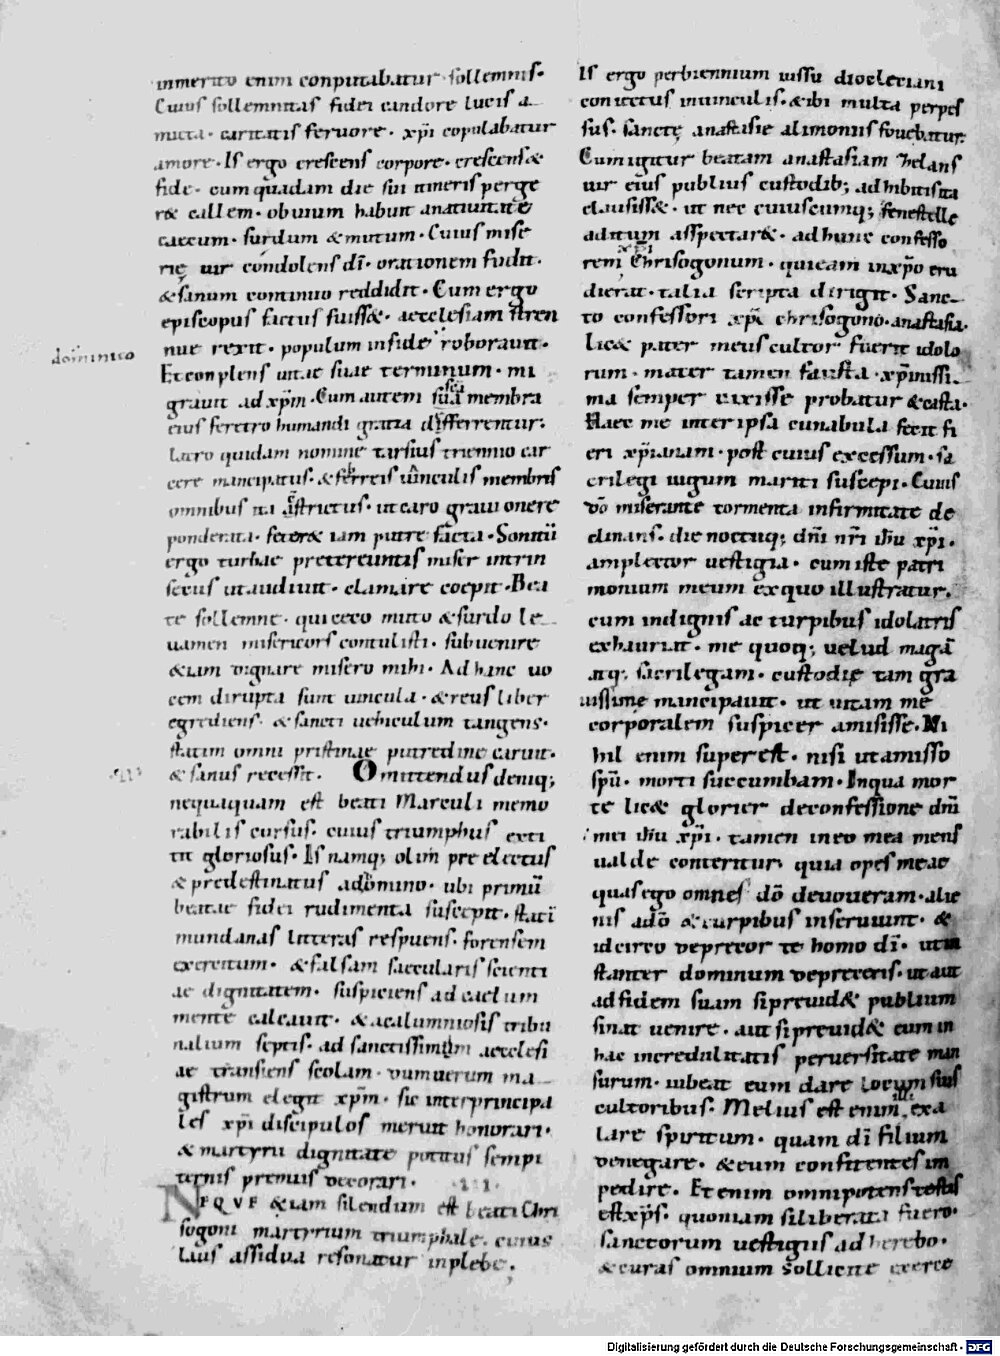 inmerito enim conputabatur sollemnis.
Cuius sollemnitas fidei candore lucis a
micta. caritatis feruore. xp̄i copulabatur
amore. Is ergo crescens corpore. crescens &
fide. cum quadam die sui itineris perge
r& callem. obuium habuit a natiuitate
caecum. surdum & mutum. Cuius mise
rię uir condolens dī. orationem fudit.
& sanum continuo reddidit. Cum ergo
episcopus factus fuiss&. aecclesiam stren
nue rexit. populum in fide roborauit.
dominico
Et conplens uitae suae terminum. mi
grauit ad xp̄m. Cum autem sua membra
eius feretro humandi gratia differrentur.
latro quidam nomine tarsius triennio car
cere mancipatus. & ferreis uinculis membris
omnibus ita astrictus. ut caro graui onere
ponderata. feter& iam putre facta. Sonitū
ergo turbae pretereuntis miser intrin
secus ut audiuit. clamare coepit. Bea
te sollemnis. qui ceco muto & surdo le
uamen misericors contulisti. subuenire
& iam dignare misero mihi. Ad hanc uo
cem dirupta sunt uincula. & reus liber
egrediens. & sancti uehiculum tangens.
statim omni pristinae putredine caruit.
& sanus recessit. Omittendus deniq;
nequaquam est beati Marculi memo
rabilis cursus. cuius triumphus exti
tit gloriosus. Is namq; olim preelectus
& predestinatus a domino. ubi primū
beatae fidei rudimenta suscepit. statī
mundanas litteras respuens. forensem
exercitum. & falsam saecularis scienti
ae dignitatem. suspiciens ad caelum
mente calcauit. & a calumniosis tribu
nalium septis. ad sanctissimam aecclesi
ae transiens scolam. dum uerum ma
gistrum elegit xp̄m. sic inter principa
les xp̄i discipulos meruit honorari.
& martyrii dignitate potitus sempi
ternis premiis decorari. .III.
NEQVE &iam silendum est beati Chri
sogoni martyrium triumphale. cuius
laus assidua resonatur in plebe.
Is ergo per biennium iussu diocletiani
coniectus in uinculis. & ibi multa perpes
sus. sanctę anastasie alimoniis fouebatur.
Cum igitur beatam anastasiam zelans
uir eius publius custodib; adhibitis ita
clausiss&. ut nec cuiuscumq; fenestelle
aditum asspectar&. ad hunc confesso
rem xp̄i Chrisogonum. qui eam in xp̄o eru
dierat. talia scripta dirigit. Sanc
to confessori xp̄i chrisogono. anastasia.
Lic& pater meus cultor fuerit idolo
rum. mater tamen fausta. xp̄inissi
ma semper uixisse probatur & casta.
Haec me inter ipsa cunabula fecit fi
eri xp̄ianam. post cuius excessum. sa
crilegi iugum mariti suscepi. Cuius
dō miserante tormenta infirmitate de
clinans. die noctuq; dn̄i nr̄i ih̄u xp̄i.
amplector uestigia. cum iste patri
monium meum ex quo illustratur.
cum indignis ac turpibus idolatris
exhauriat. me quoq; uelud magā
atq; sacrilegam. custodię tam gra
uissime mancipauit. ut uitam me
corporalem suspicer amisisse. Ni
hil enim superest. nisi ut amisso
spū. morti succumbam. In qua mor
te lic& glorier de confessione dn̄i
mei ih̄u xp̄i. tamen in eo mea mens
ualde conteritur. quia opes meae
quas ego omnes dō deuoueram. alie
nis a dō & turpibus inseruiunt. &
idcirco deprecor te homo dī. ut in
stanter dominum depreceris. ut aut
ad fidem suam si preuid& publium
sinat uenire. aut si preuid& eum in
hac incredulitatis peruersitate man
surum. iubeat eum dare locum suis
cultoribus. Melius est enim illi exa
lare spiritum. quam dī filium
denegare. & eum confitentes im
pedire. Et enim omnipotens testis
est xp̄s. quoniam si liberata fuero.
sanctorum uestigiis adherebo.
& curas omnium sollicite exerce
Digitalisierung gefördert durch die Deutsche Forschungsgemeinschaft - DFG